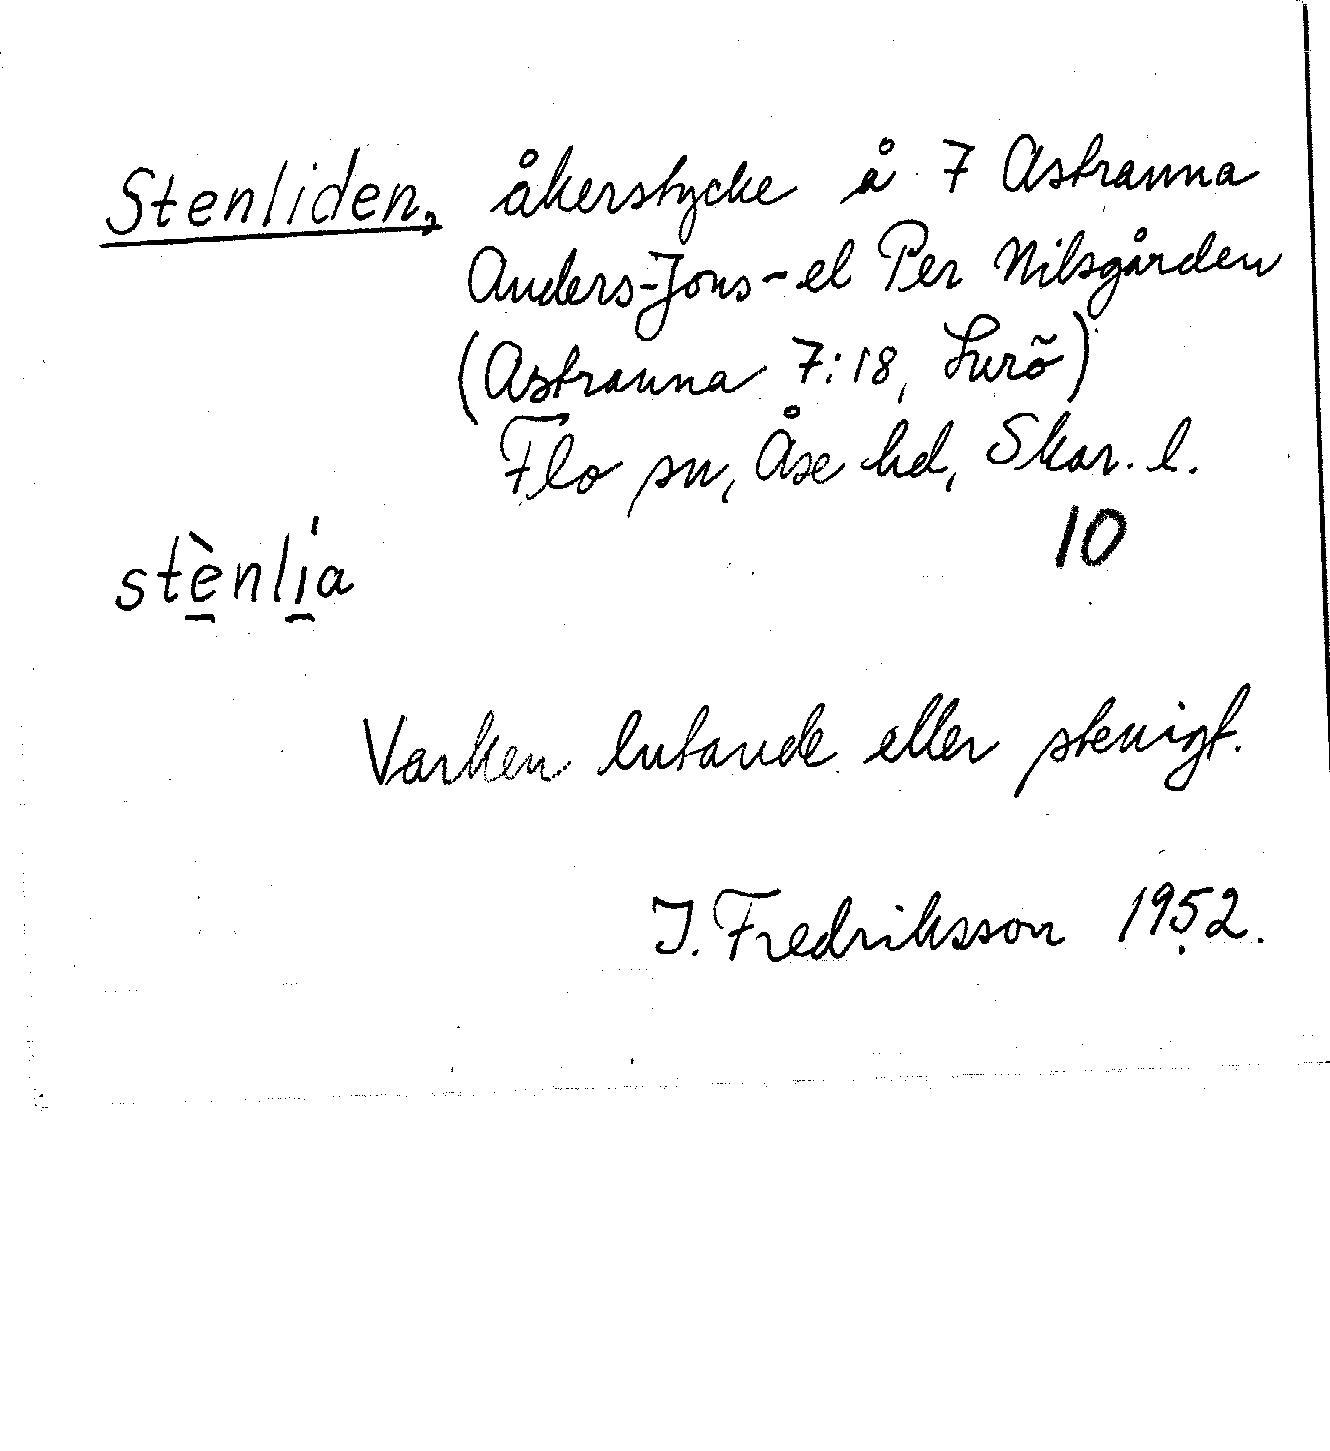 Stenliden, åkerstycke å 7 Astranna
Anders-Jons-el Per Nilsgården
(Astranna 7:18, Lurö)
Flo sn, Åse hd, Skar. l.
10
stè̱nlí̱a
Varken lutande eller stenigt.
J. Fredriksson 1952.